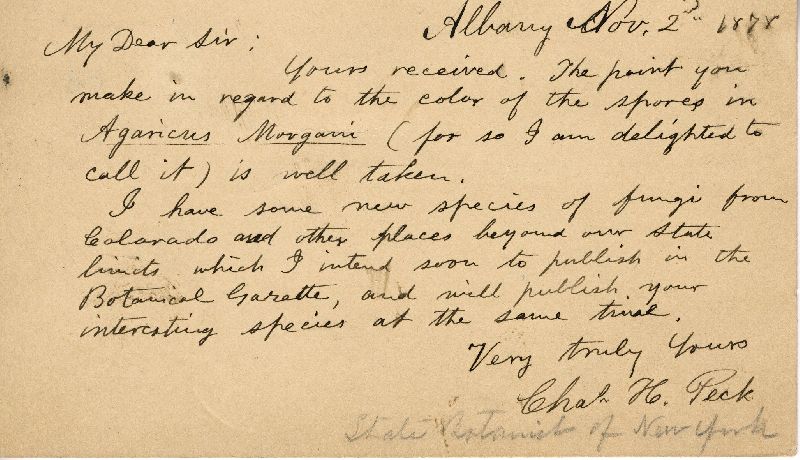 Albany Nov. 2nd 1878
My Dear Sir;
Yours received. The point you
make in regard to the color of the spores in
Agaricus Morgani (for so I am delighted to
call it) is well taken.
I have some new species of fungi from
Colorado and other places beyond our State
limits which I intend soon to publish in the
Botanical Gazette, and will publish your
interesting species at the same time.
Very truly Yours
Chas. H. Peck
State Botanist of New York